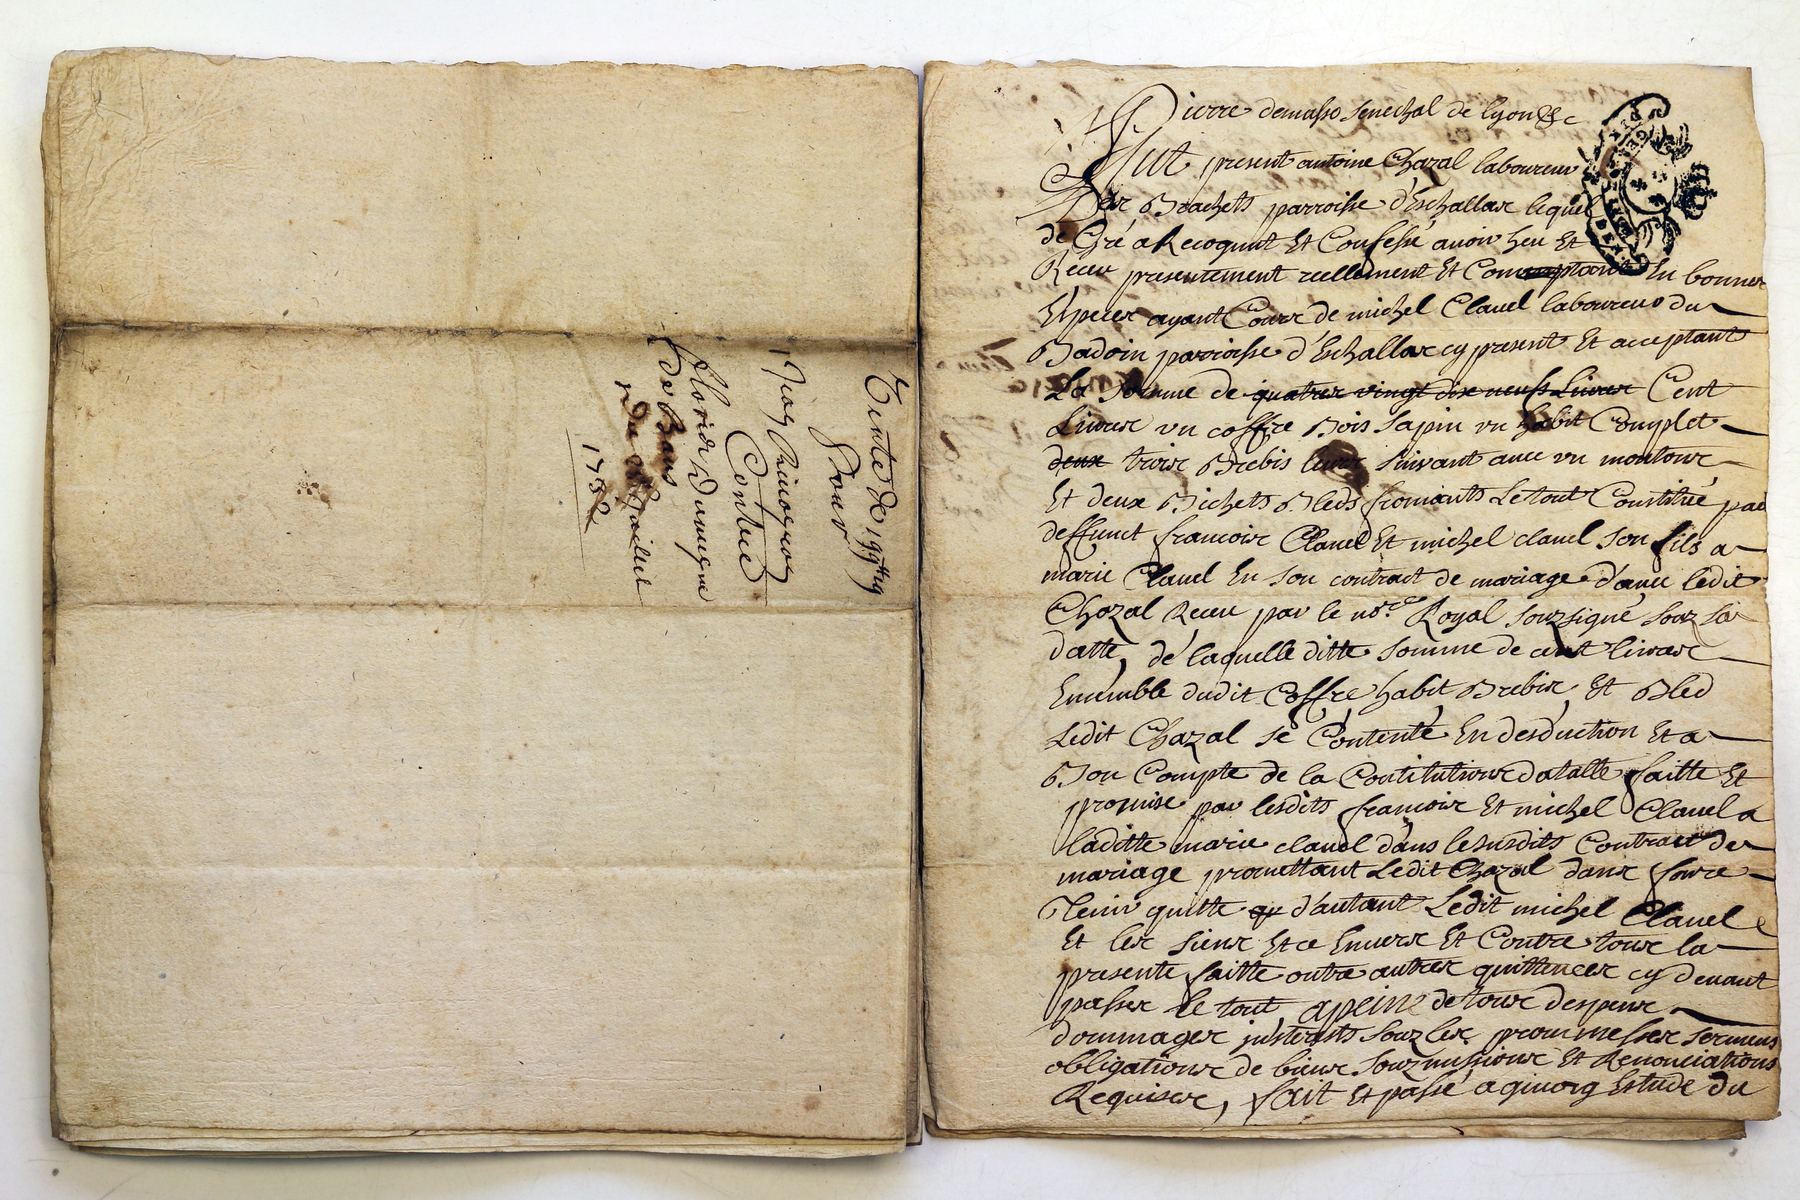 Pour
Contre
1732
Pierre demasso senechal de lyon &c
Fut present antoine Chazal laboureur
Des Brachets parroisse d'Eschallas lequel
de Gré a Recognut Et Confessé avoir heu Et
Receu presentement reellement Et Comptant En bonnes
Especes ayant Cours de michel Clauel laboureur du
Badoin parroisse d'Eschallas cy present Et acceptant
La somme de quatres vingt dix neufs Livres Cent
Livres vn coffre Bois sapin vn habit Complet
deux trois Brebis suivant auec vn moutons
Et deux Bichets Bleds fromants Le tout Constitué par
deffunct francois Clauel Et michel clauel son fils a
marie Clauel En son contract de mariage d'auec ledit
Chazal Receu par le nore Royal souzsigné souz sa
datte, de laquelle ditte somme de cent livres
Ensemble dudit Coffre habit Brebis Et Bled
Ledit Chazal se Contenté En desduction Et a
Bon Compte de la Contitutions datalle faitte Et
promise par lesdits francois Et michel Clauel a
laditte marie clauel dans lesusdits Contract de
mariage promettant Ledit Chazal dans faire
Tenir quitte d'autant Ledit michel Clauel
Et les siens Et ce Enuers Et Contre tous la
presente faitte outre autres quittences cy deuant
passes Le tout apeine de tous despens
dommages jnterests souz les promesses sermens
obligations de biens souzmissions Et Renonciations
Requises, fait Et passé a giuors Estude du